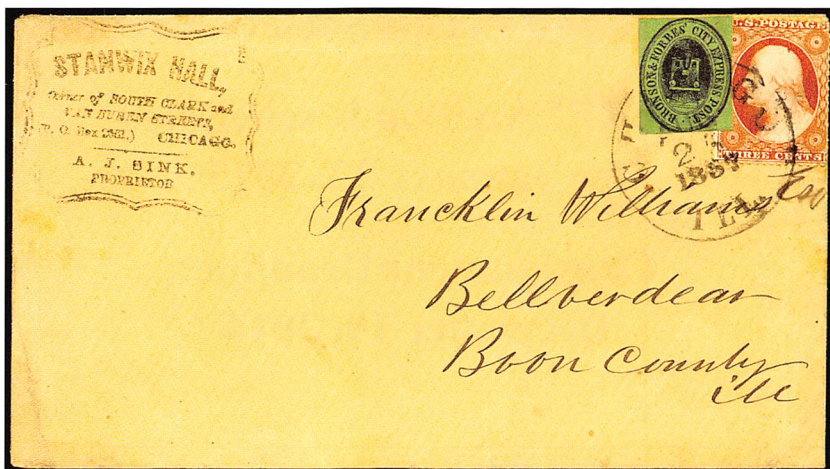 STANWIX HALL,
Corner of SOUTH CLARK and
VAN BUREN STREETS,
(P. O. Box) CHICAGO.
A. J. SINK,
PROPRIETOR
BRONSON & FORBES' CITY EXPRESS POST.
U.S. POSTAGE
THREE CENTS
CHICAGO
1857
ILL
Francklin Williams
Bellverdear
Boon County
ill